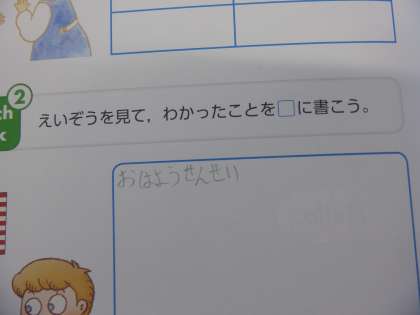 2
えいぞうを見て，わかったことを□に書こう。
おはようせんせい